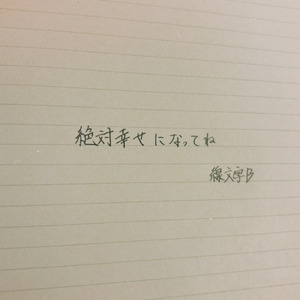 絶対幸せになってね
線文字B